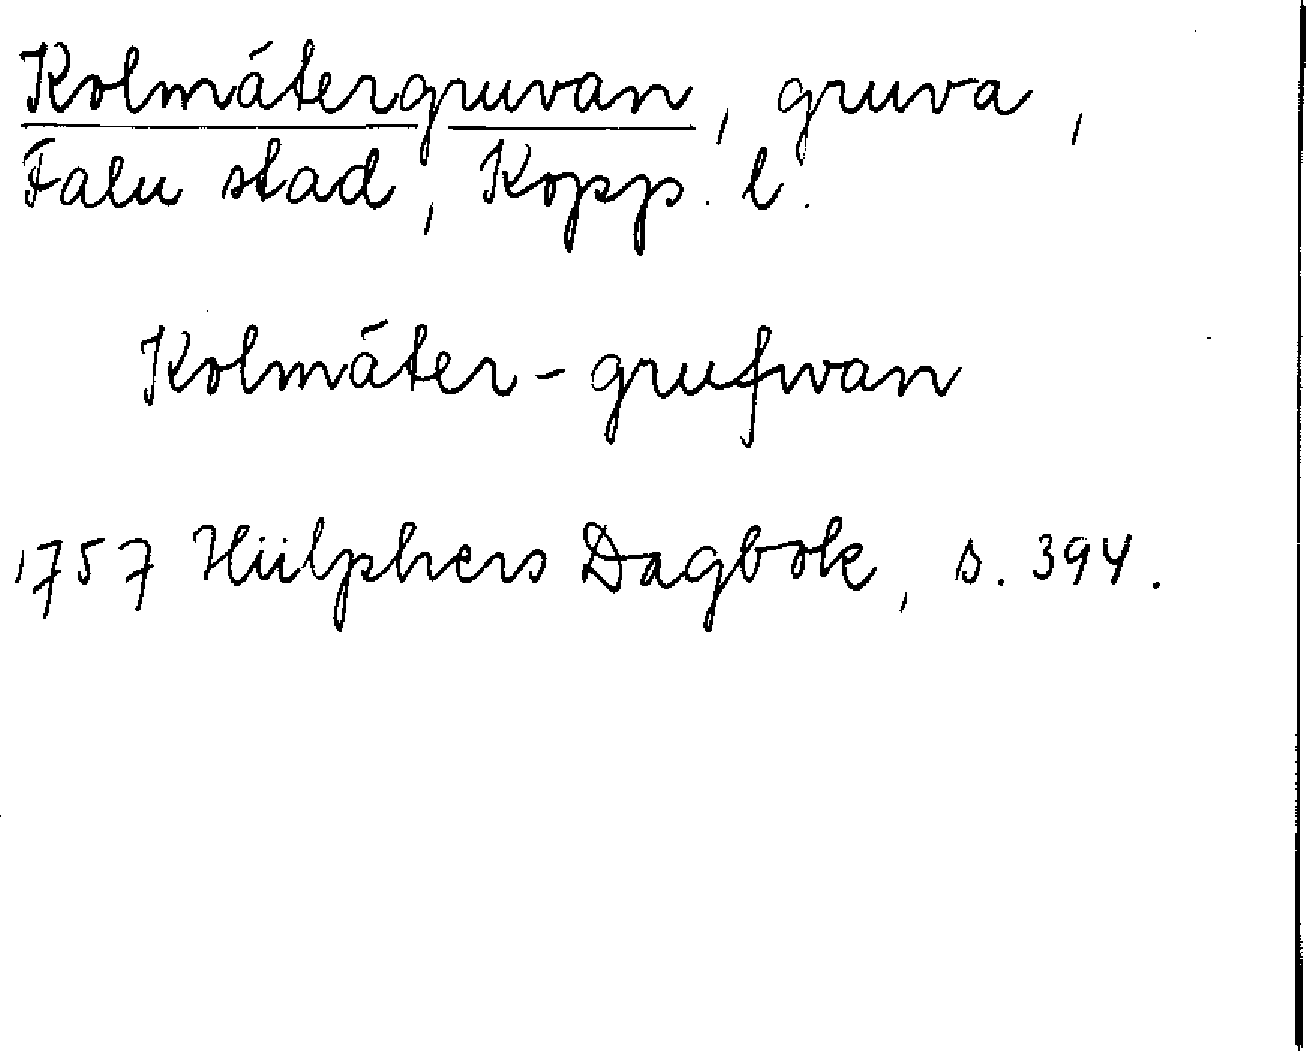 Kolmätergruvan, gruva,
Falu stad, Kopp. l.
Kolmäter-grufwan
1757 Hülphers Dagbok, s. 394.